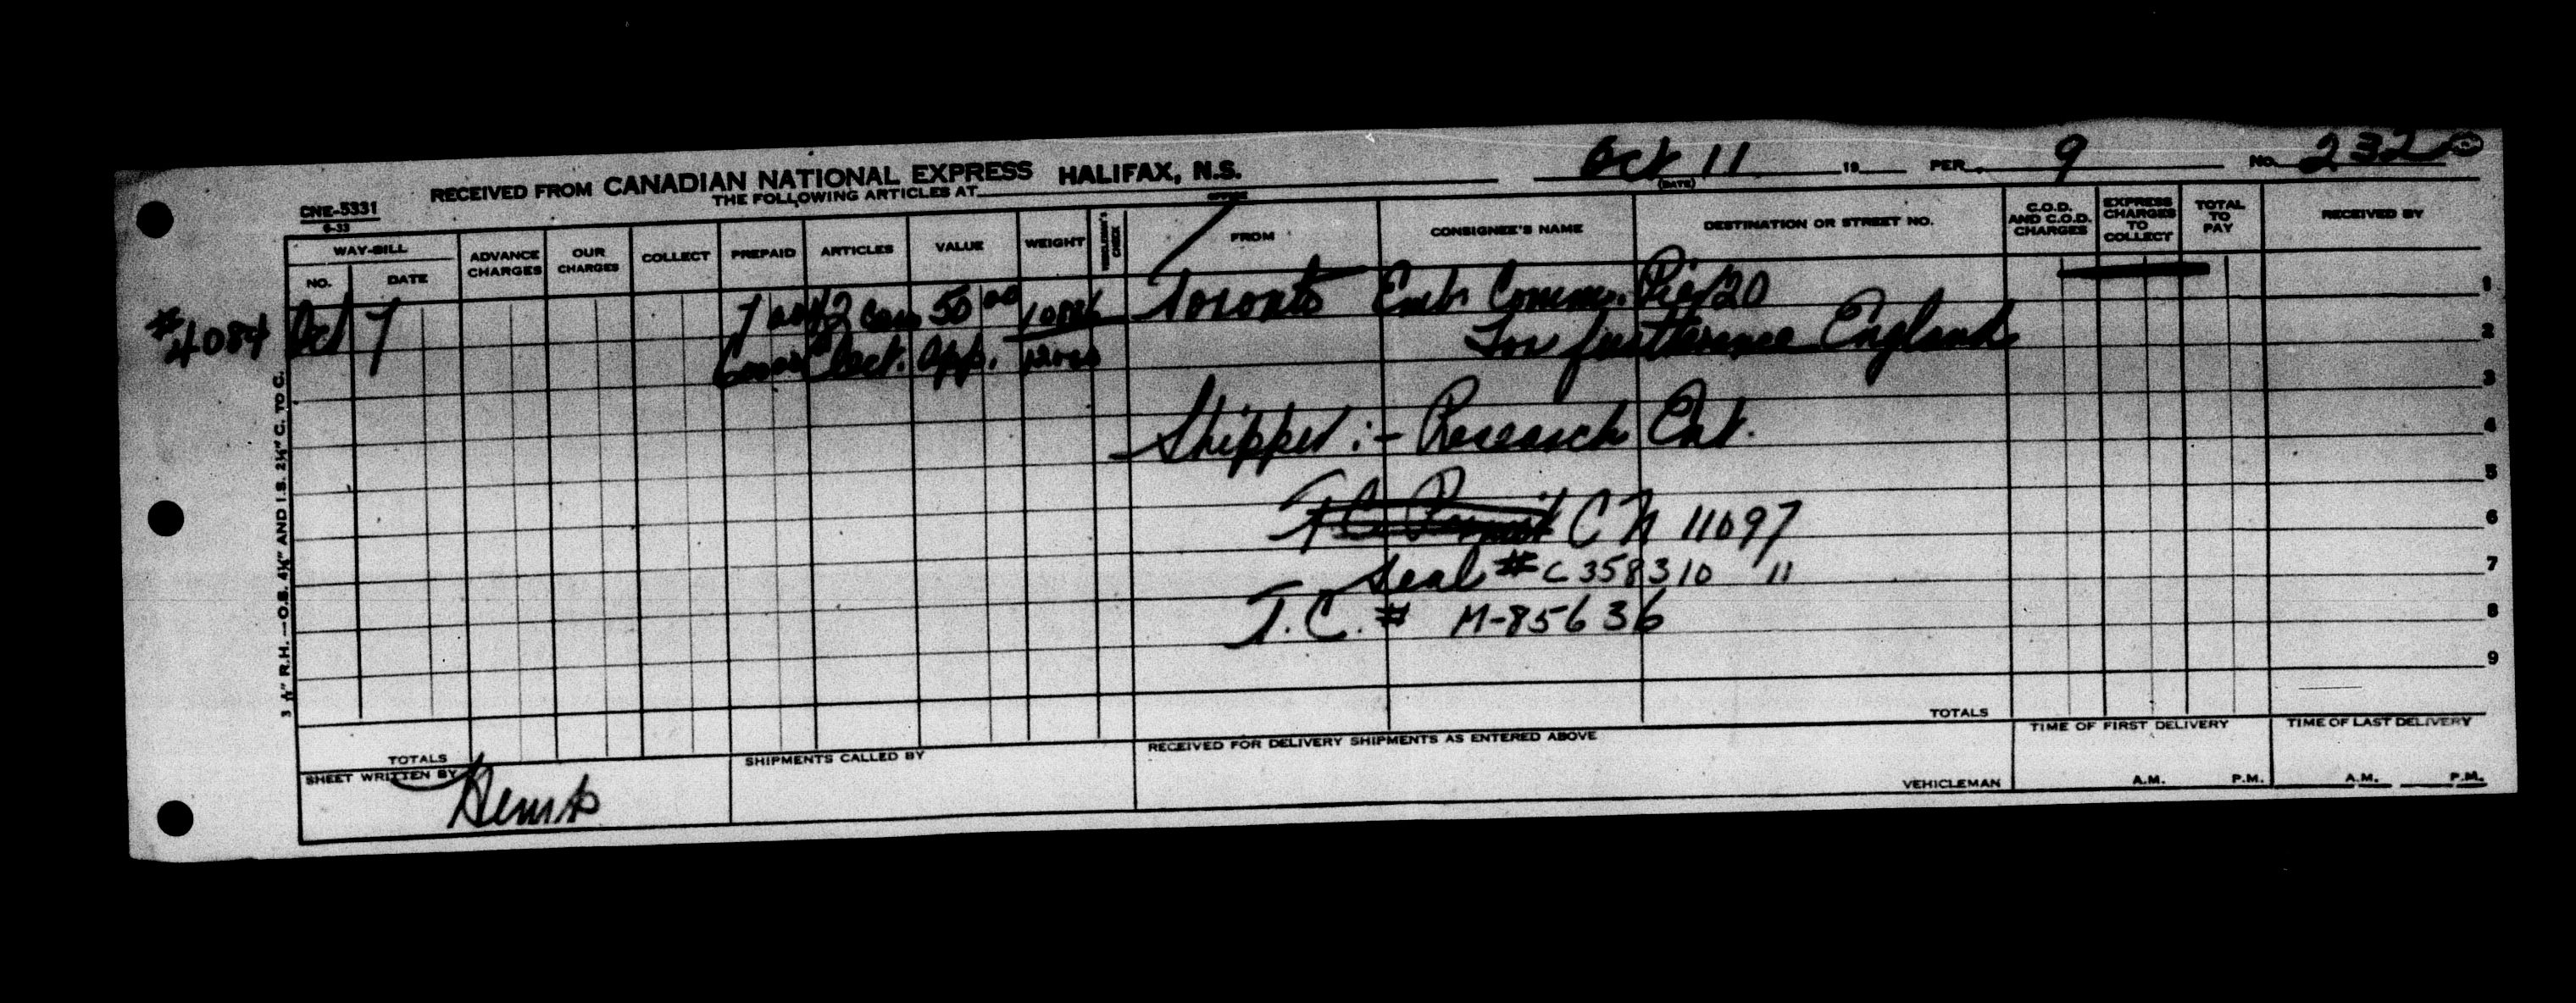 RECEIVED FROM CANADIAN NATIONAL EXPRESS HALIFAX, N.S. Oct 11 19 PER 9 No. 232
THE FOLLOWING ARTICLES AT OFFICE (DATE)
CNE-5331
6-33
WAY-BILL NO. DATE ADVANCE CHARGES OUR CHARGES COLLECT PREPAID ARTICLES VALUE WEIGHT CHECK FROM CONSIGNEE'S NAME DESTINATION OR STREET NO. C.O.D. AND C.O.D. CHARGES EXPRESS CHARGES TO COLLECT TOTAL TO PAY RECEIVED BY
#4084 Oct 7 50 00 Toronto Emb. Comm. Pier 20 1
Elect. App. For furtherance England 2
3
Shipper :- Research Ent. 4
5
T.C. Permit C N 11097 6
Seal # C 358310 11 7
T.C. # M-85636 8
9
3 ½" R.H.—O.S. 4¼" AND I.S. 2¼" C. TO C.
TOTALS TOTALS
SHEET WRITTEN BY SHIPMENTS CALLED BY RECEIVED FOR DELIVERY SHIPMENTS AS ENTERED ABOVE VEHICLEMAN TIME OF FIRST DELIVERY A.M. P.M. TIME OF LAST DELIVERY A.M. P.M.